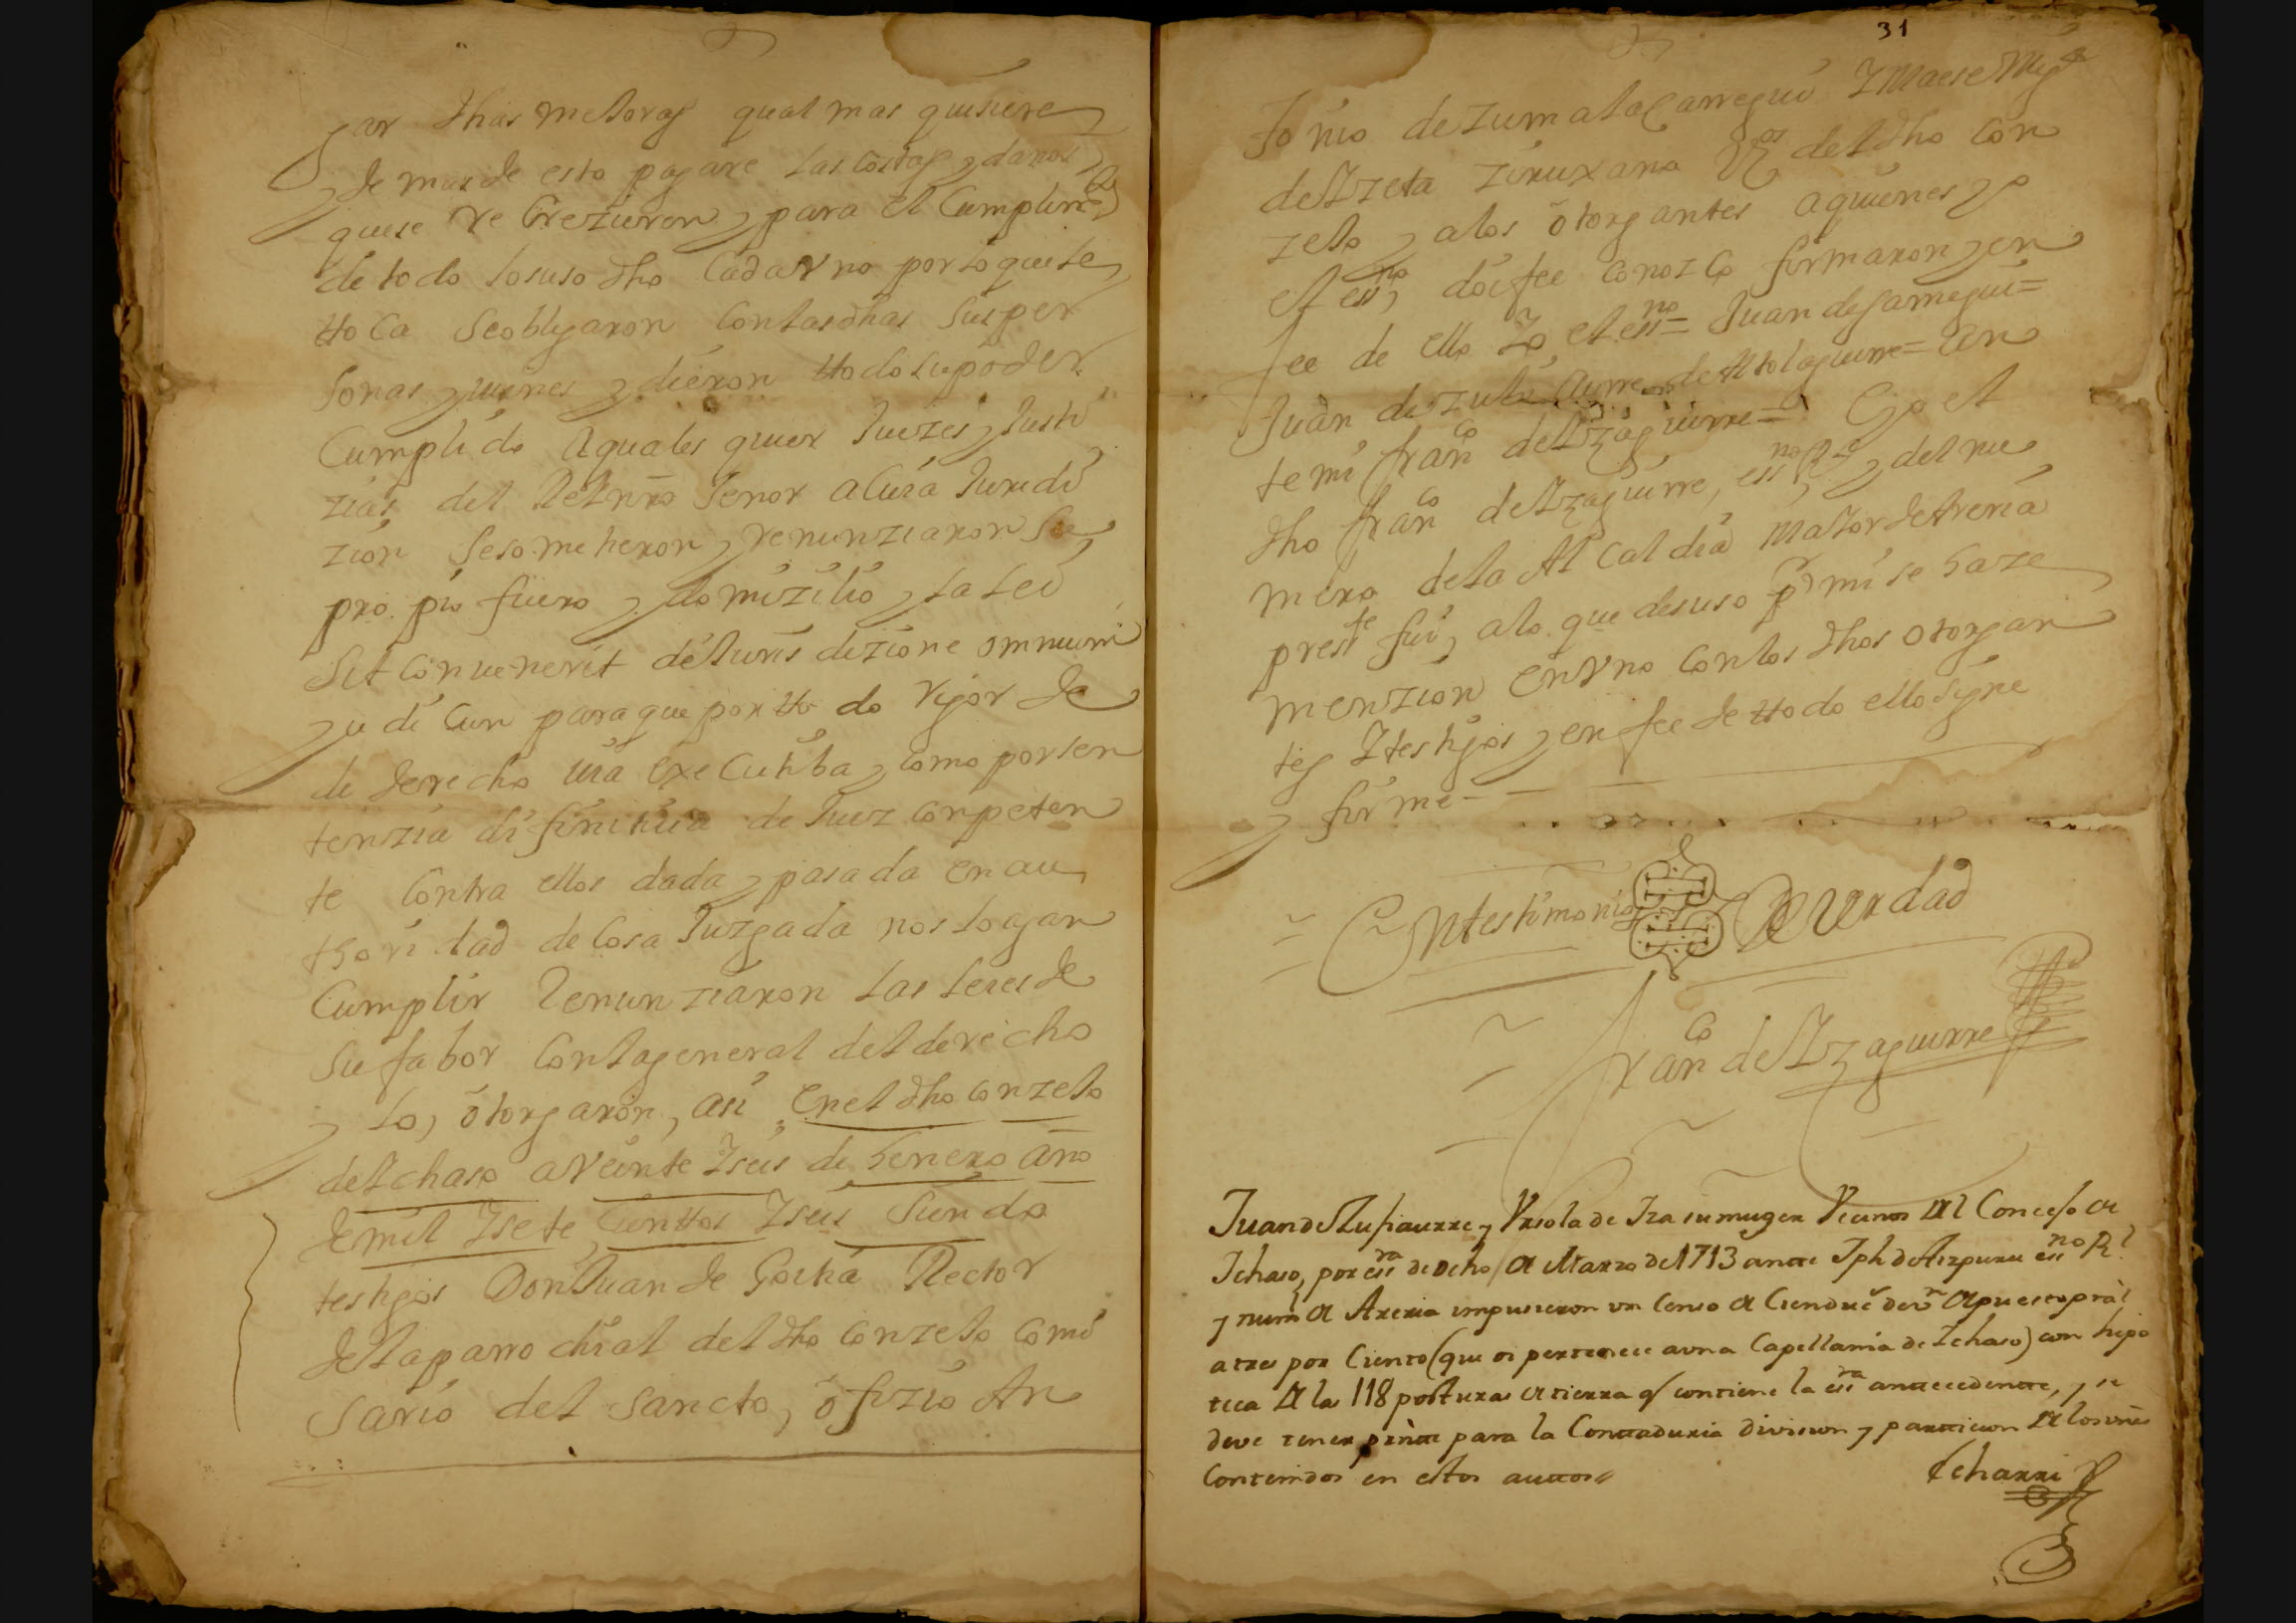 gar dhas mexoras qual mas quisiere
y demas de esto pagare las costas y danos
que se re Crezieren y para el Cumplim.to
de todo lo suso dho Cada Vno por lo que le
tto Ca se obligaron Con las dhas sus per
sonas y uienes y dieron ttodo su poder
Cumplido a quales quier Juezes y Justi
zias del Rei nro senor a Cuia Juridi
zion se sometieron y renunziaron su
pro pio fuero y domizilio y la lei
sit conuenerit de Juris dizione omnium
judi Cun para que por tto do rigor de
de derecho uia exe Cutiba y como por sen
tenzia difinitiua de Juez conpeten
te Contra ellos dada y pasada en au
thori dad de Cosa Juzgada nos lo agan
Cumplir Renun ziaron las leies de
su fabor Con la general del derecho
y lo, otorgaron, asi, en el dho conzejo
de Ichaso a Veinte Iseis de henero año
de mil Isete Cienttos Iseis siendo
testigos Don Juan de Goitia Rector
de la parro chial del dho conzejo comi
sario del sancto, ofizio An
31
tonio de Zumala Carregui I Maese Mig.l
de Izeta ziruxano Vz.os del dho con
zejo y a los otorgantes a quienes yo
el ess.no doi fee Conoz Co firmaron y en
fee de ello Io el ess.no = Juan de Jarregui =
Juan de Zufi Aurre de Atolaguirre = An
te mi fran.co de Izaguirre = E yo el
dho fran.co de Izaguirre, ess.no R.l y del nu
mero de la Al Caldia Maior de Areria
pres.te fui, a lo que desuso p.r mi se haze
menzion en Vno Con los dhos otorgan
tes I testigos y en fee de ttodo ello signe
y firme
En testimonio de Verdad
fran.co de Izaguirre
Juan de Zufiaurre y Vrsola de Iza su muger Vecinos del Concejo de
Ichaso, por ess.ra de ocho de Marzo de 1713 antte Jph de Aizpuru ess.no R.l
y num.o de Areria impusieron vn Censo de Cien duc.s de v.n de puesto pral
a tres por Ciento (que oi pertenece a vna Capellania de Ichaso) con hipo
teca de las 118 posturas de tierra q contiene la ess.ra anttecedentte, y se
deve tener pnte para la Conttaduria division y partticion de los vnes
Contenidos en estos auttos
Echarri